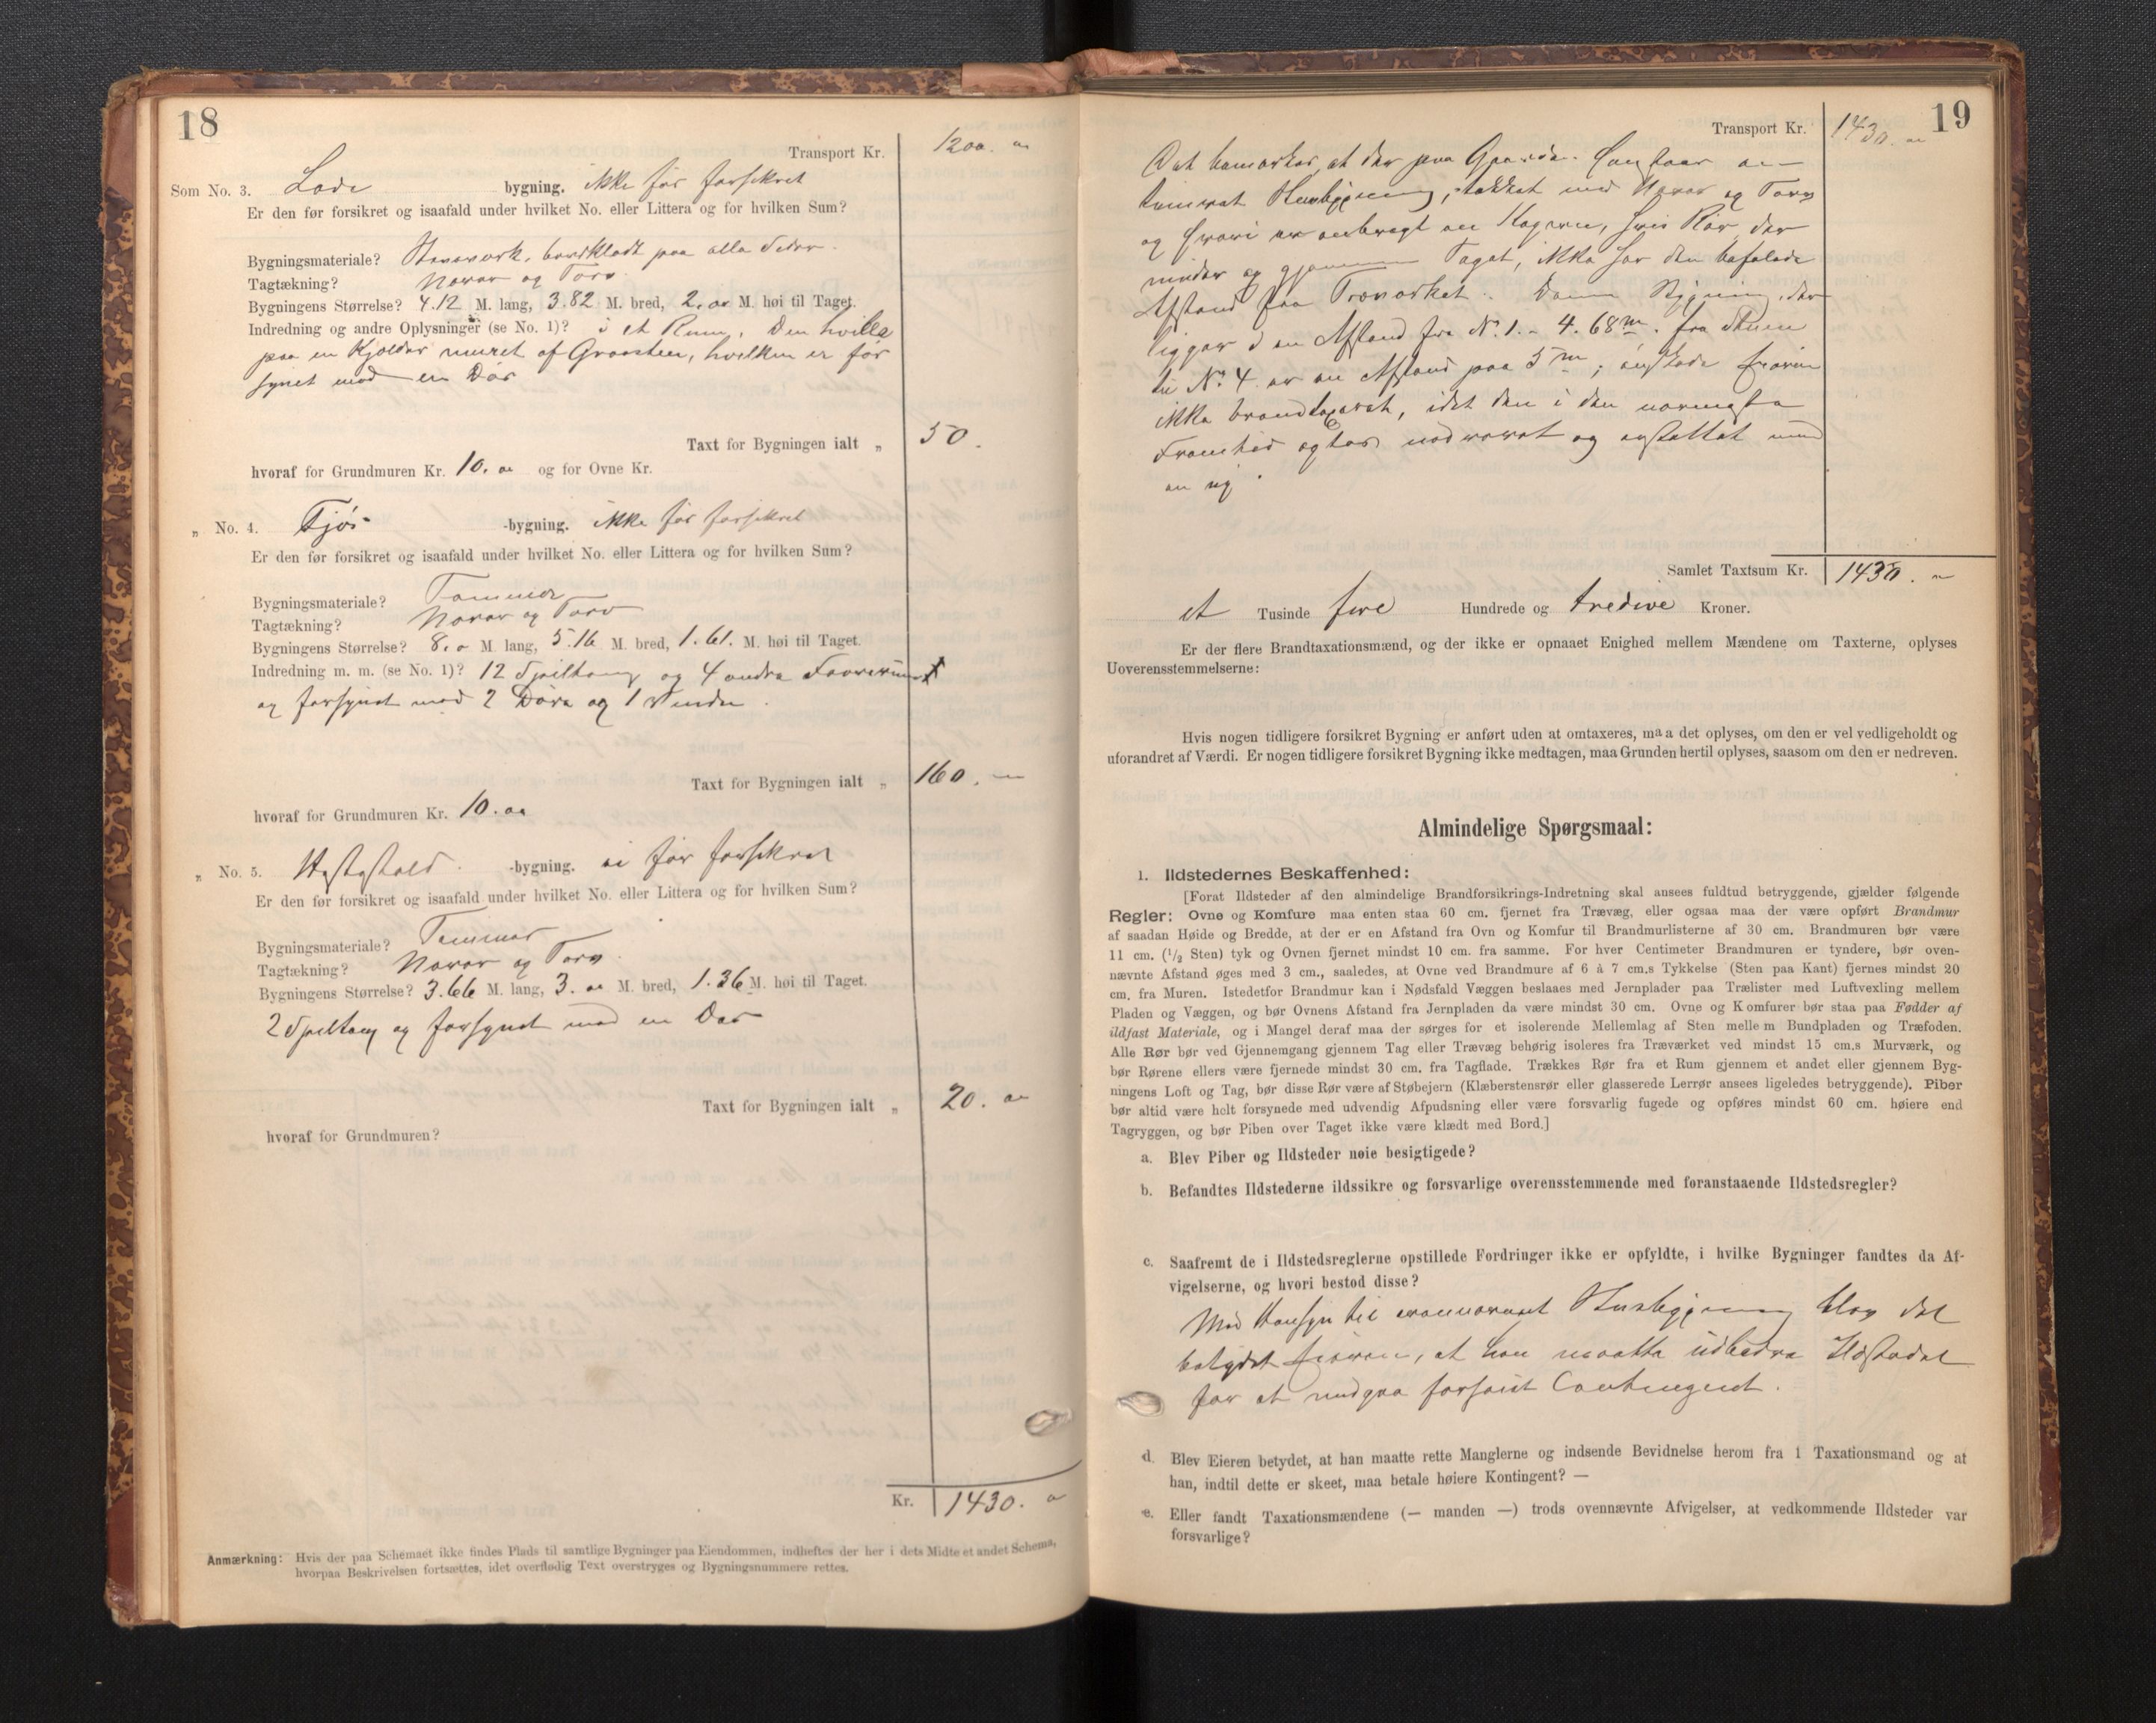 18
Transport Kr. 1200. "
Som No. 3. Lade bygning. ikke før forsikret
Er den før forsikret og isaafald under hvilket No. eller Littera og for hvilken Sum?
Bygningsmateriale? Stavværk, bordklædt paa alle Sider.
Tagtækning? Næver og Torv
Bygningens Størrelse? 4.12 M. lang, 3.82 M. bred, 2. " M. høi til Taget.
Indredning og andre Oplysninger (se No. 1)? i et Rum, den hviler
paa en Kjælder muret af Graasten, hvilken er for
synet med en Dør
Taxt for Bygningen ialt „ 50.
hvoraf for Grundmuren Kr. 10. " og for Ovne Kr.
„ No. 4. Fjøs -bygning. ikke før forsikret
Er den før forsikret og isaafald under hvilket No. eller Littera og for hvilken Sum?
Bygningsmateriale? Tømmer
Tagtækning? Næver og Torv
Bygningens Størrelse? 8. " M. lang, 5.16 M. bred, 1.61. M. høi til Taget.
Indredning m. m. (se No. 1)? 12 Spiltoug og 4 andre
og forsynet med 2 Døre og 1 Vindu.
Taxt for Bygningen ialt „ 160. "
hvoraf for Grundmuren Kr. 10. "
„ No. 5. Hestestald -bygning. ei før forsikret
Er den før forsikret og isaafald under hvilket No. eller Littera og for hvilken Sum?
Bygningsmateriale? Tømmer
Tagtækning? Næver og Torv.
Bygningens Størrelse? 3.66 M. lang, 3. " M. bred, 1.36 M. høi til Taget.
2 Spiltoug og forsynet med en Dør
Taxt for Bygningen ialt „ 20. "
hvoraf for Grundmuren?
Kr. 1430. "
Anmærkning: Hvis der paa Schemaet ikke findes Plads til samtlige Bygninger paa Eiendommen, indheftes der her i dets Midte et andet Schema,
hvorpaa Beskrivelsen fortsættes, idet overflødig Text overstryges og Bygningsnummere rettes.
19
Transport Kr. 1430. "
Det bemærkes, at der paa Gaarden
tømret Husbygning, tækket med Næver og Torv
og hvori er anbragt en Kogeovn, hvis Rør, der
munder og gjennem Taget, ikke har den befalede
Afstand fra Træværket. Denne Bygning, der
ligger i en Afstand fra No. 1. - 4.68 m. fra Stuen
til No. 4 er en Afstand paa 5 m; ønskede Eieren
ikke brandtaxeret, idet den i den nærmeste
Fremtid agtes nedrevet og erstattet med
en ny.
Samlet Taxtsum Kr. 1430. "
et Tusinde fire Hundrede og tredive Kroner.
Er der flere Brandtaxationsmænd, og der ikke er opnaaet Enighed mellem Mændene om Taxterne, oplyses
Uoverensstemmelserne:
Hvis nogen tidligere forsikret Bygning er anført uden at omtaxeres, maa det oplyses, om den er vel vedligeholdt og
uforandret af Værdi. Er nogen tidligere forsikret Bygning ikke medtagen, maa Grunden hertil oplyses, saasom om den er nedreven.
Almindelige Spørgsmaal:
1. Ildstedernes Beskaffenhed:
[Forat Ildsteder af den almindelige Brandforsikrings-Indretning skal ansees fuldtud betryggende, gjælder følgende
Regler: Ovne og Komfure maa enten staa 60 cm. fjernet fra Trævæg, eller ogsaa maa der være opført Brandmur
af saadan Høide og Bredde, at der er en Afstand fra Ovn og Komfur til Brandmurlisterne af 30 cm. Brandmuren bør være
11 cm. (1/2 Sten) tyk og Ovnen fjernet mindst 10 cm. fra samme. For hver Centimeter Brandmuren er tyndere, bør oven-
nævnte Afstand øges med 3 cm., saaledes, at Ovne ved Brandmure af 6 à 7 cm.s Tykkelse (Sten paa Kant) fjernes mindst 20
cm. fra Muren. Istedetfor Brandmur kan i Nødsfald Væggen beslaaes med Jernplader paa Trælister med Luftvexling mellem
Pladen og Væggen, og bør Ovnens Afstand fra Jernpladen da være mindst 30 cm. Ovne og Komfurer bør staa paa Fødder af
ildfast Materiale, og i Mangel deraf maa der sørges for et isolerende Mellemlag af Sten mellem Bundpladen og Træfoden.
Alle Rør bør ved Gjennemgang gjennem Tag eller Trævæg behørig isoleres fra Træværket ved mindst 15 cm.s Murværk, og
bør Rørene ellers være fjernede mindst 30 cm. fra Tagflade. Trækkes Rør fra et Rum gjennem et andet eller gjennem Byg-
ningens Loft og Tag, bør disse Rør være af Støbejern (Klæberstensrør eller glasserede Lerrør ansees ligeledes betryggende). Piber
bør altid være helt forsynede med udvendig Afpudsning eller være forsvarlig fugede og opføres mindst 60 cm. høiere end
Tagryggen, og bør Piben over Taget ikke være klædt med Bord.]
a. Blev Piber og Ildsteder nøie besigtigede?
b. Befandtes Ildstederne ildssikre og forsvarlige overensstemmende med foranstaaende Ildstedsregler?
c. Saafremt de i Ildstedsreglerne opstillede Fordringer ikke er opfyldte, i hvilke Bygninger fandtes da Af-
vigelserne, og hvori bestod disse?
Med Hensyn til ovennævnt Husbygning blev det
betydet Eieren, at han maatte udbedre Ildstedet
for at undgaa forhøiet Contingent.
d. Blev Eieren betydet, at han maatte rette Manglerne og indsende Bevidnelse herom fra 1 Taxationsmand og at
han, indtil dette er skeet, maa betale høiere Kontingent? —
e. Eller fandt Taxationsmændene (— manden —) trods ovennævnte Afvigelser, at vedkommende Ildsteder var
forsvarlige?